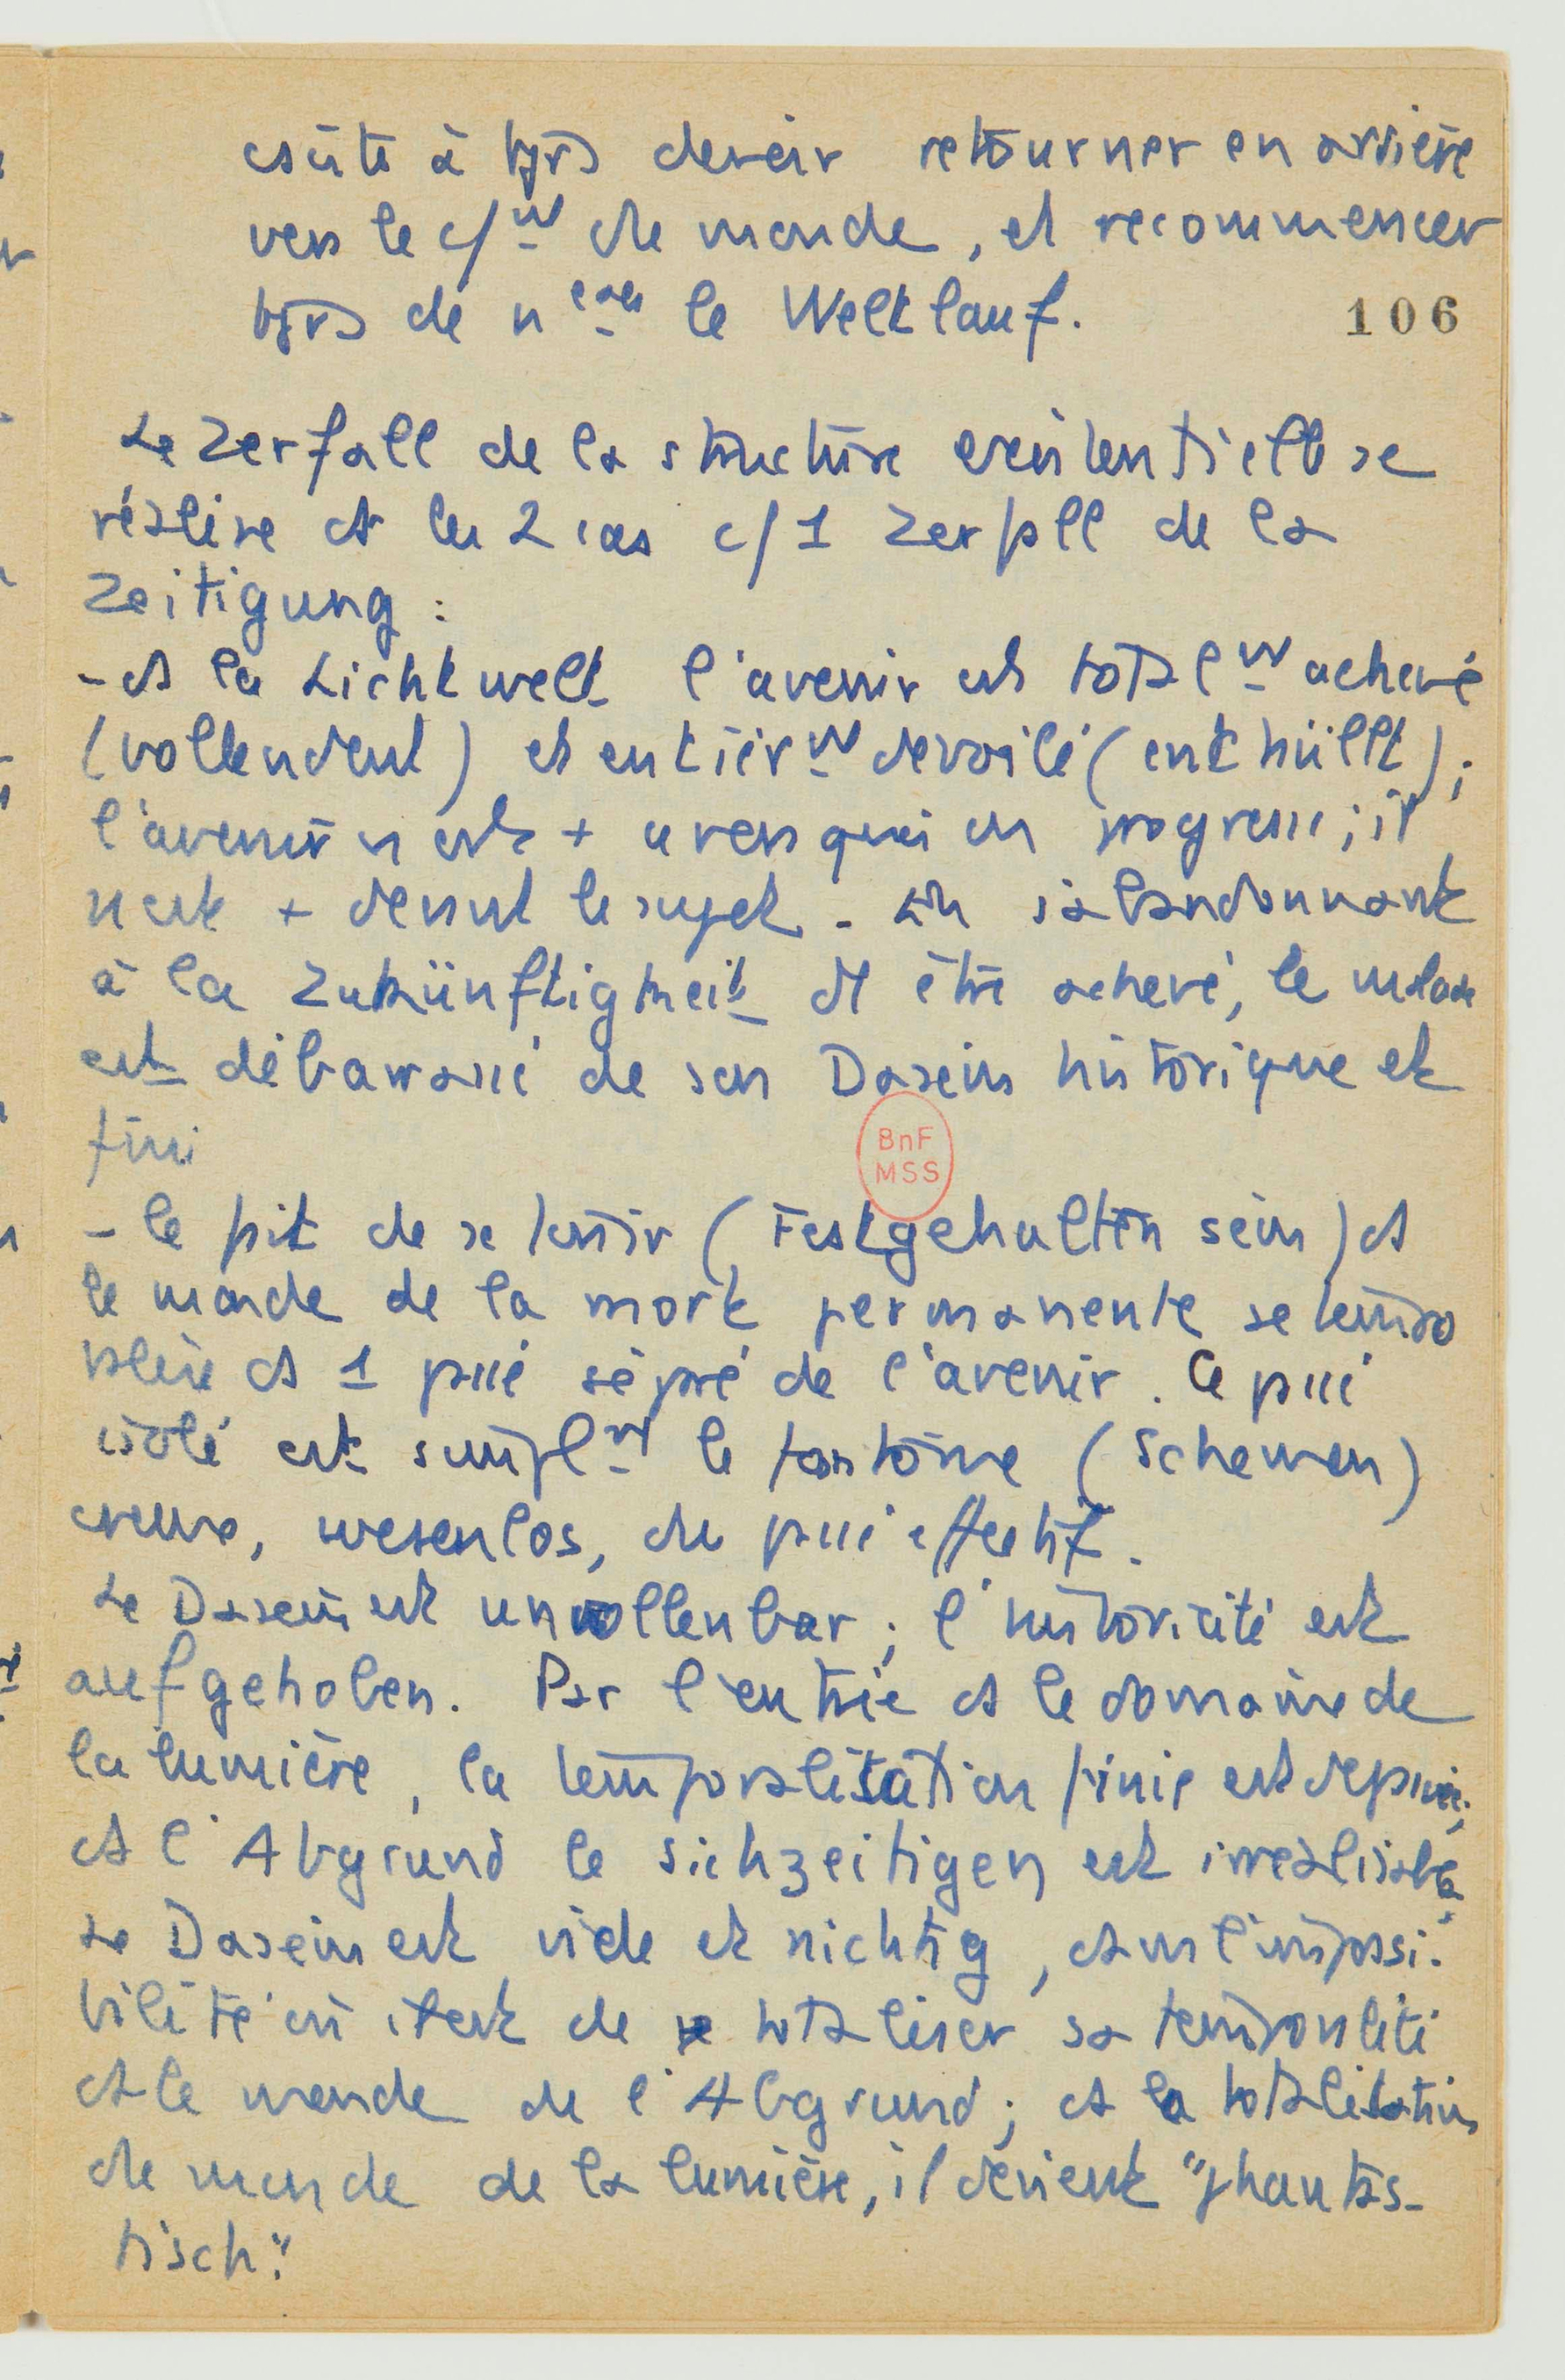 ensuite à tjrs devoir retourner en arrière
vers le c/mt du monde, et recommencer
tjrs de nveau le Weltlauf.
106
Le Zerfall de la structure existentielle se
réalise ds les 2 cas c/ 1 Zerfall de la
Zeitigung :
- ds la Lichtwelt l'avenir est totalmt achevé
(vollendent) et entièrmt dévoilé (enthüllt);
l'avenir n'est + a vers quoi on progresse; il
n'est + devant le sujet. En s'abandonnant
à la Zukünftigkeit d'1 être achevé, le malade
est débarrassé de son Dasein historique et
fini
- le fait de se tenir (Festgehalten sein) ds
le monde de la mort permanente se tempo
ralise ds 1 passé séparé de l'avenir. Ce passé
isolé est simplmt le fantôme (Schemen)
creux, wesenlos, du passé effectif.
Le Dasein est unvollenbar; l'historicité est
aufgehoben. Par l'entrée ds le domaine de
la lumière, la temporalisation finie est dépassée;
ds l'Abgrund le sichzeitigen est irréalisable.
Le Dasein est vide et nichtig, ds l'impossi-
bilité où il est de totaliser sa temporalité
ds le monde de l'Abgrund; ds la totalisation
du monde de la lumière, il devient "phantas-
tisch".
BnF
MSS